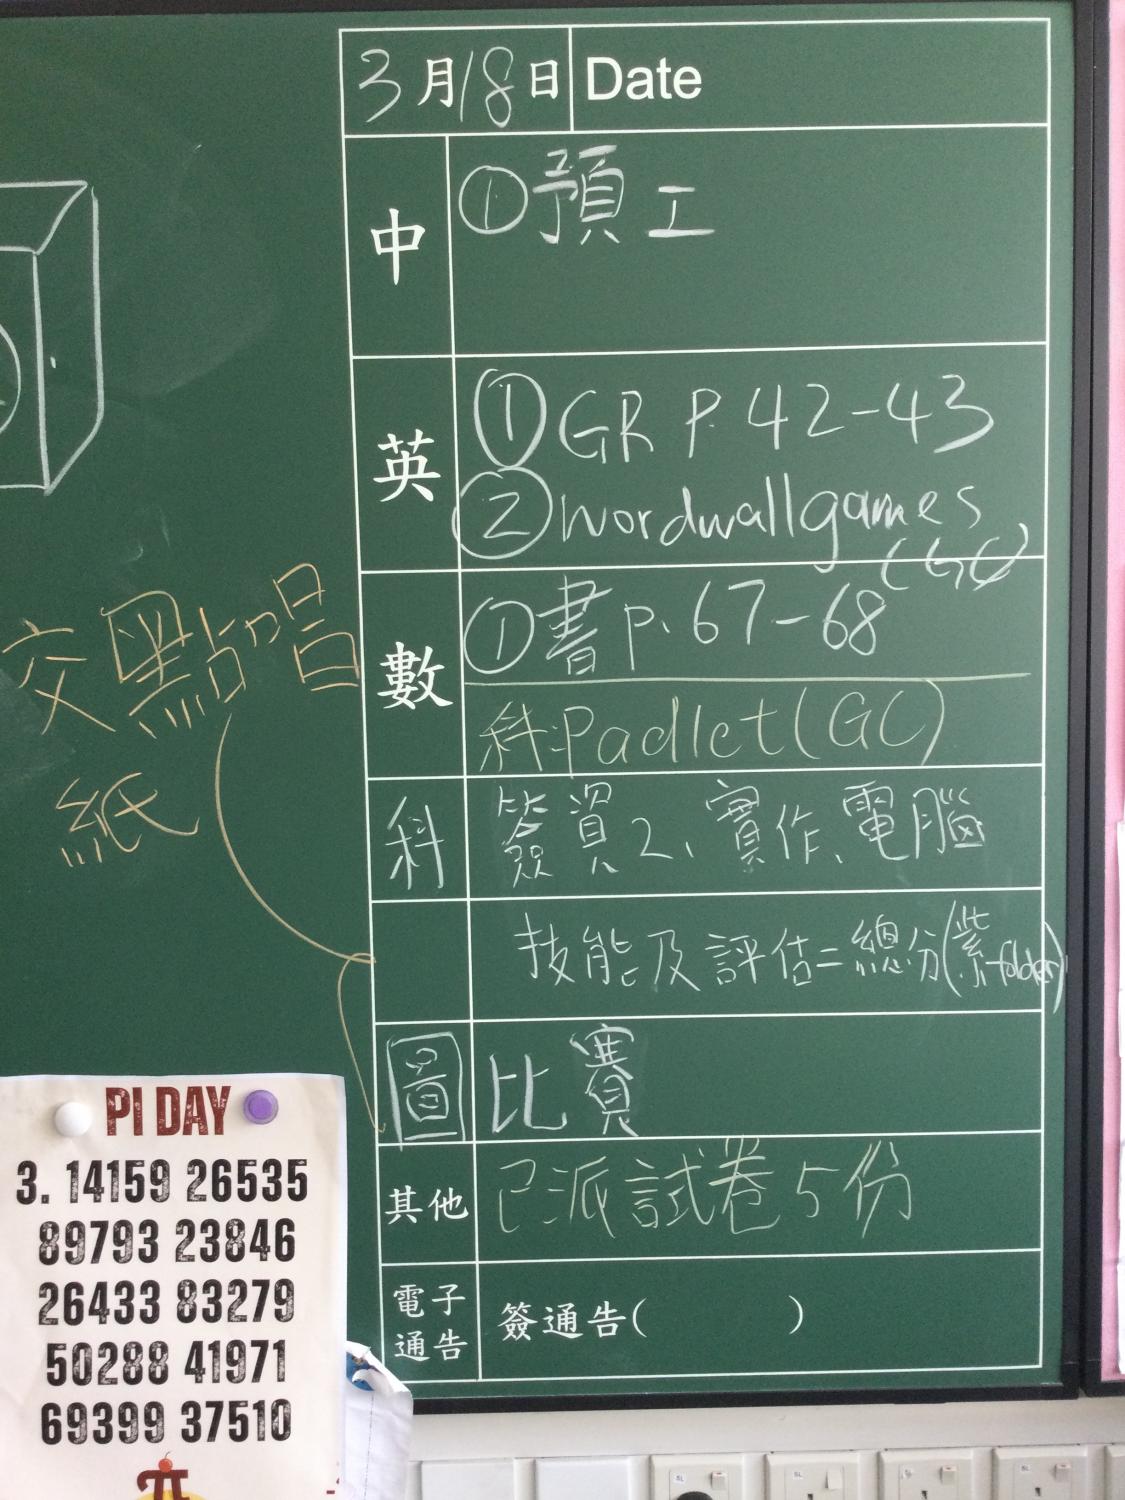 3月18日 Date
中 ①預工
英 ①GR P.42-43
②wordwall games
(GC)
數 ①書p.67-68
科:Padlet(GC)
科 簽資2、實作、電腦
技能及評估=總分(紫folder)
圖 比賽
其他 已派試卷5份
電子通告 簽通告( )
交點唱
紙
PI DAY
3. 14159 26535
89793 23846
26433 83279
50288 41971
69399 37510
π